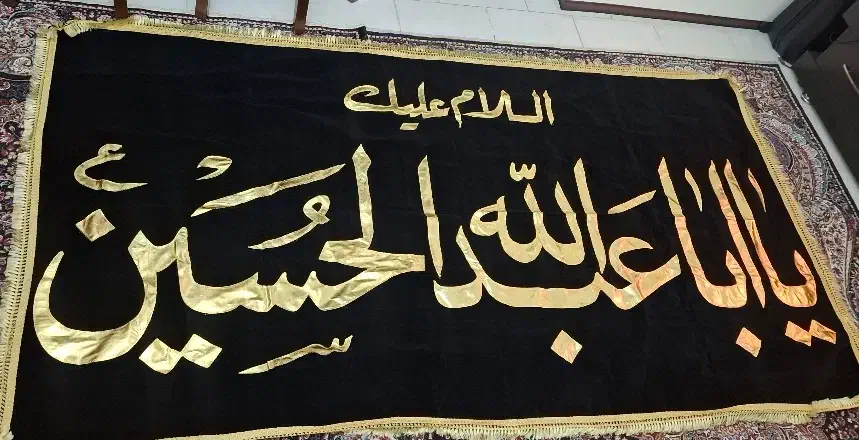 السلام علیک
یا ابا عبدالله الحسین ع